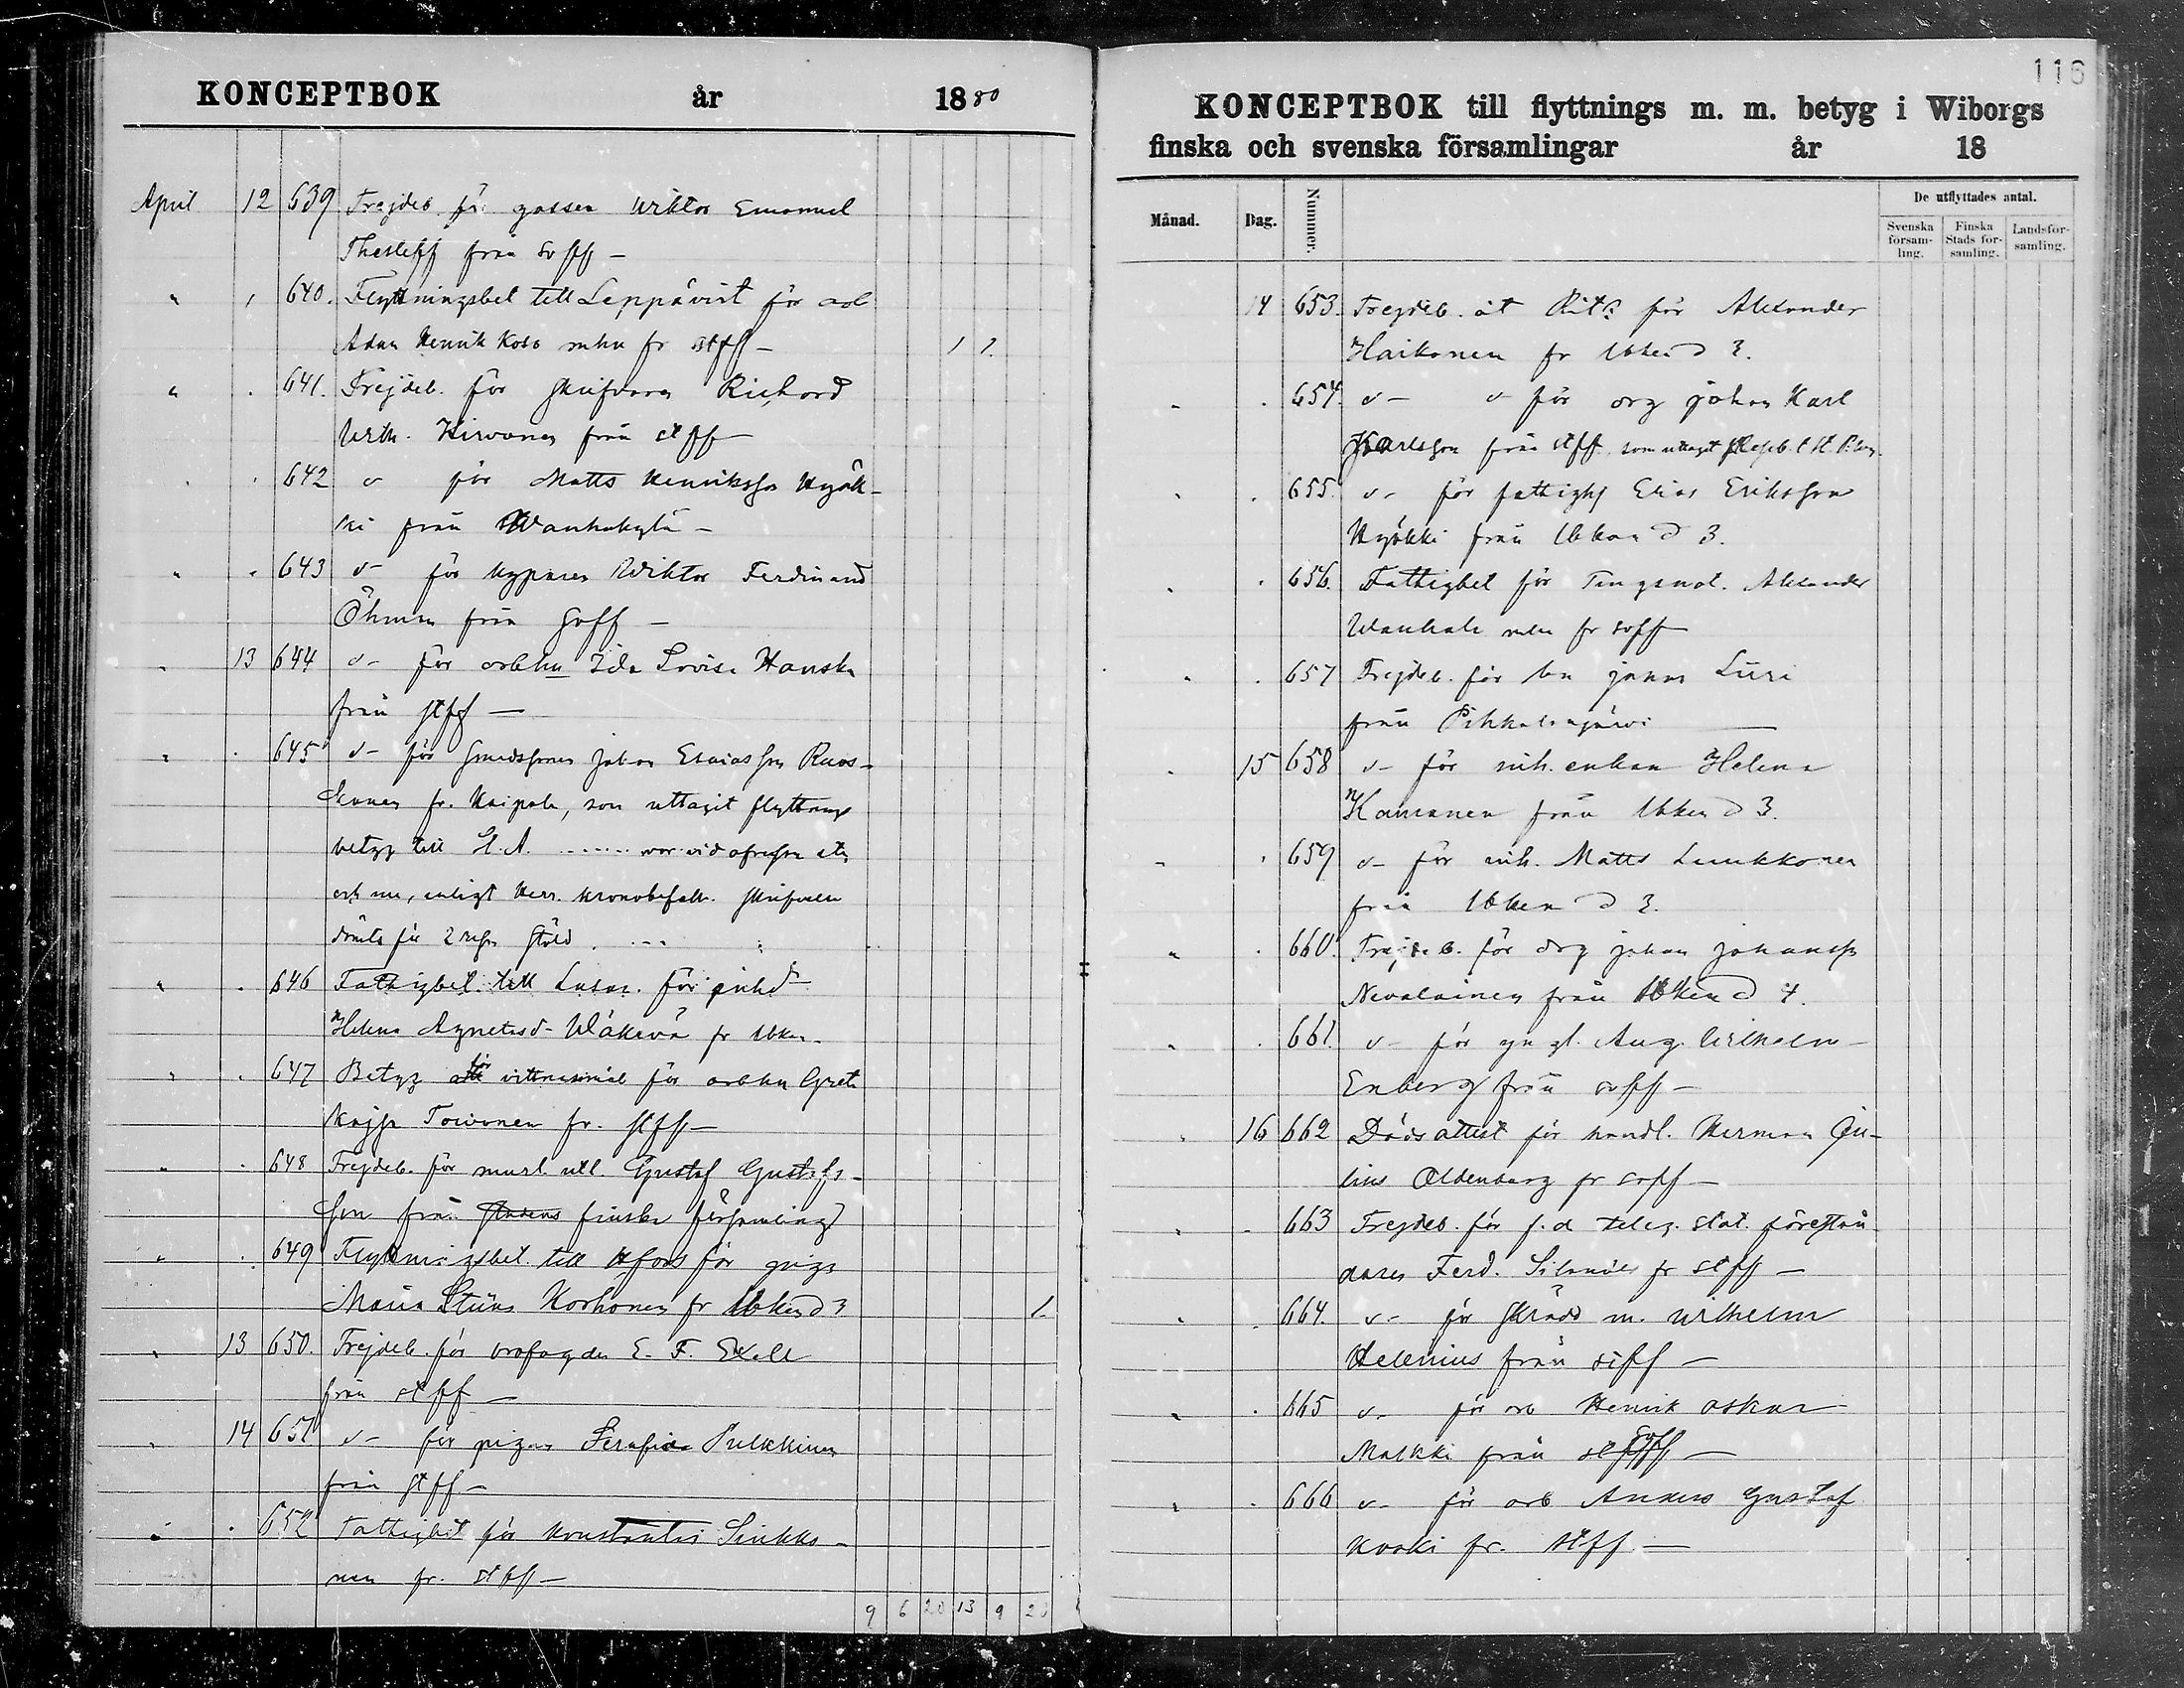 KONCEPTBOK år 1880
April 12 639 Frejdeb. för gossen Wiktor Emanuel
Thesleff från sv ff –
" " 640. Flyttningsbet till Leppävirt för arb
Adam Henrik Koso fr stff – 1 1.
" . 641. Frejdeb. för skrifvaren Richard
Wilh. Hirvonen från stff
. . 642 d för Matts Henriksson Kyök-
ki från Wanhakylä –
" " 643 d– för kyparen Wiktor Ferdinand
Öhman från svff –
" 13 644 d– för arbhu Ida Lovisa Hanska
från stff –
" . 645 d– för smedssonen Johan Esaiasson Ruos-
kanen fr. Kaipola, som uttagit flyttnings
betyg till St. A. ...... var vid afresan
och nu, enligt Herr. kronobefalln. skrifvelse
dömts för 2 resan stöld. ...
" . 646 Fattigbet. till Lasar. för inhd
Helena Agnetasd– Wäkevä fr Ibken.
" . 647 Betyg till vittnesmål för arbhu Greta
Kajsa Toivonen fr. stff –
" . 648 Frejdeb. för murl. Gustaf Gustafs-
son från stadens finska församling
" . 649 Flyttningsbet. till Hfors för piga
Maria Stiina Korhonen fr Ibken d 3 1.
" 13 650. Frejdeb. för brofogden E. F. Exell
från stff –
" 14 651 d– för pigan Serafina Pulkkinen
från stff –
" . 652 Fattigbet för Konstantin Sinkko-
nen fr. stff –
9 6 20 13 9 20
116
KONCEPTBOK till flyttnings m. m. betyg i Wiborgs
finska och svenska församlingar år 18
Månad. Dag. Nummer. De utflyttades antal.
Svenska församling. Finska Stads församling. Landsförsamling.
14 653. Frejdeb. åt för Alexander
Haikonen fr Ibken d 3.
" . 654. d– d för drg Johan Karl
Karlsson från stff som uttagit
" . 655. d– för fatthj Elias Eriksson
Kyökki från Ibken d 3.
" . 656. Fattigbet för Alexander
Wanhala fr svff
" . 657 Frejdeb. för bn Jonas Liiri
från Pihkalanjärvi –
" 15 658 d– för inh. enkan Helena
Hamanen från Ibken d 3.
" . 659 d– för inh. Matts Luukkonen
från Ibken d 3.
" . 660. Frejdeb. för drg Johan Johansson
Nevalainen från Ibken d 4.
" . 661. d– för Aug. Wilhelm
Enberg från svff –
" 16 662 Dödsattest för handl. Herman Ju-
lius Oldenburg fr svff –
" " 663 Frejdeb. för f. d teleg. stat. förestån
daren Ferd. Silander fr stff –
" . 664. d– för skrädd m. Wilhelm
Helenius från stff –
" . 665 d– för arb Henrik Oskar
Malkki från stff –
" . 666 d– för arb Anders Gustaf
Koski fr. stff. –